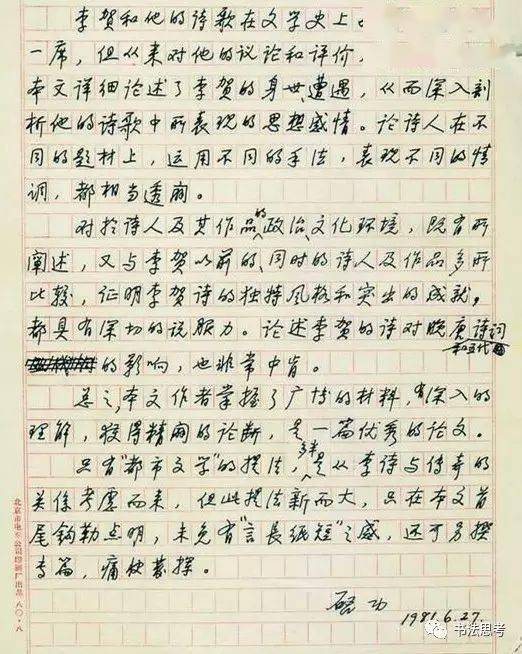 李贺和他的诗歌在文学史上
一席，但从来对他的议论和评价，
本文详细论述了李贺的身世、遭遇，从而深入剖
析他的诗歌中所表现的思想感情。论诗人在不
同的题材上，运用不同的手法，表现不同的情
调，都相当透阔。
对于诗人及其作品的政治、文化环境，既有所
阐述，又与李贺以前的、同时的诗人及作品多所
比较，证明李贺诗的独特风格和突出的成就，
都具有深切的说服力。论述李贺的诗对晚唐诗词
和五代
的影响，也非常中肯。
总之，本文作者掌握了广博的材料，有深入的
理解，获得精阔的论断，是一篇优秀的论文。
只有“都市文学”的提法，多半是从李诗与传奇的
关系考虑而来，但此提法新而大，只在本文首
尾钩勒点明，未免有“言长纸短”之感，还可另撰
专篇，痛快发挥。
启功 1981.6.27.
北京市电车公司印刷厂出品 八〇·八
书法思考